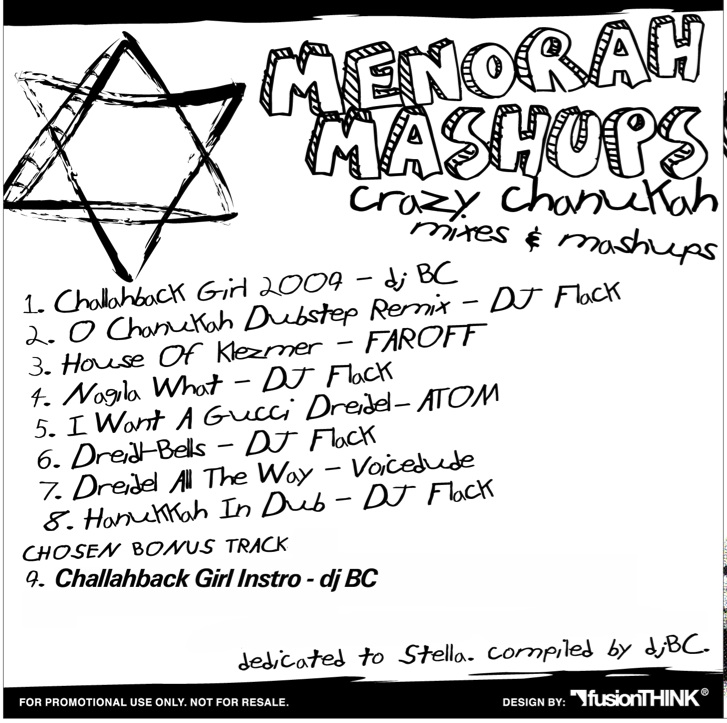 MENORAH
MASHUPS
crazy chanukah
mixes & mashups
1. Challahback Girl 2009 - dj BC
2. O Chanukah Dubstep Remix - DJ Flack
3. House Of Klezmer - FAROFF
4. Nagila What - DJ Flack
5. I Want A Gucci Dreidel - ATOM
6. Dreidl-Bells - DJ Flack
7. Dreidel All The Way - Voicedude
8. Hanukkah In Dub - DJ Flack
CHOSEN BONUS TRACK
9. Challahback Girl Instro - dj BC
dedicated to Stella. compiled by djBC.
FOR PROMOTIONAL USE ONLY. NOT FOR RESALE.
DESIGN BY: fusionTHINK®